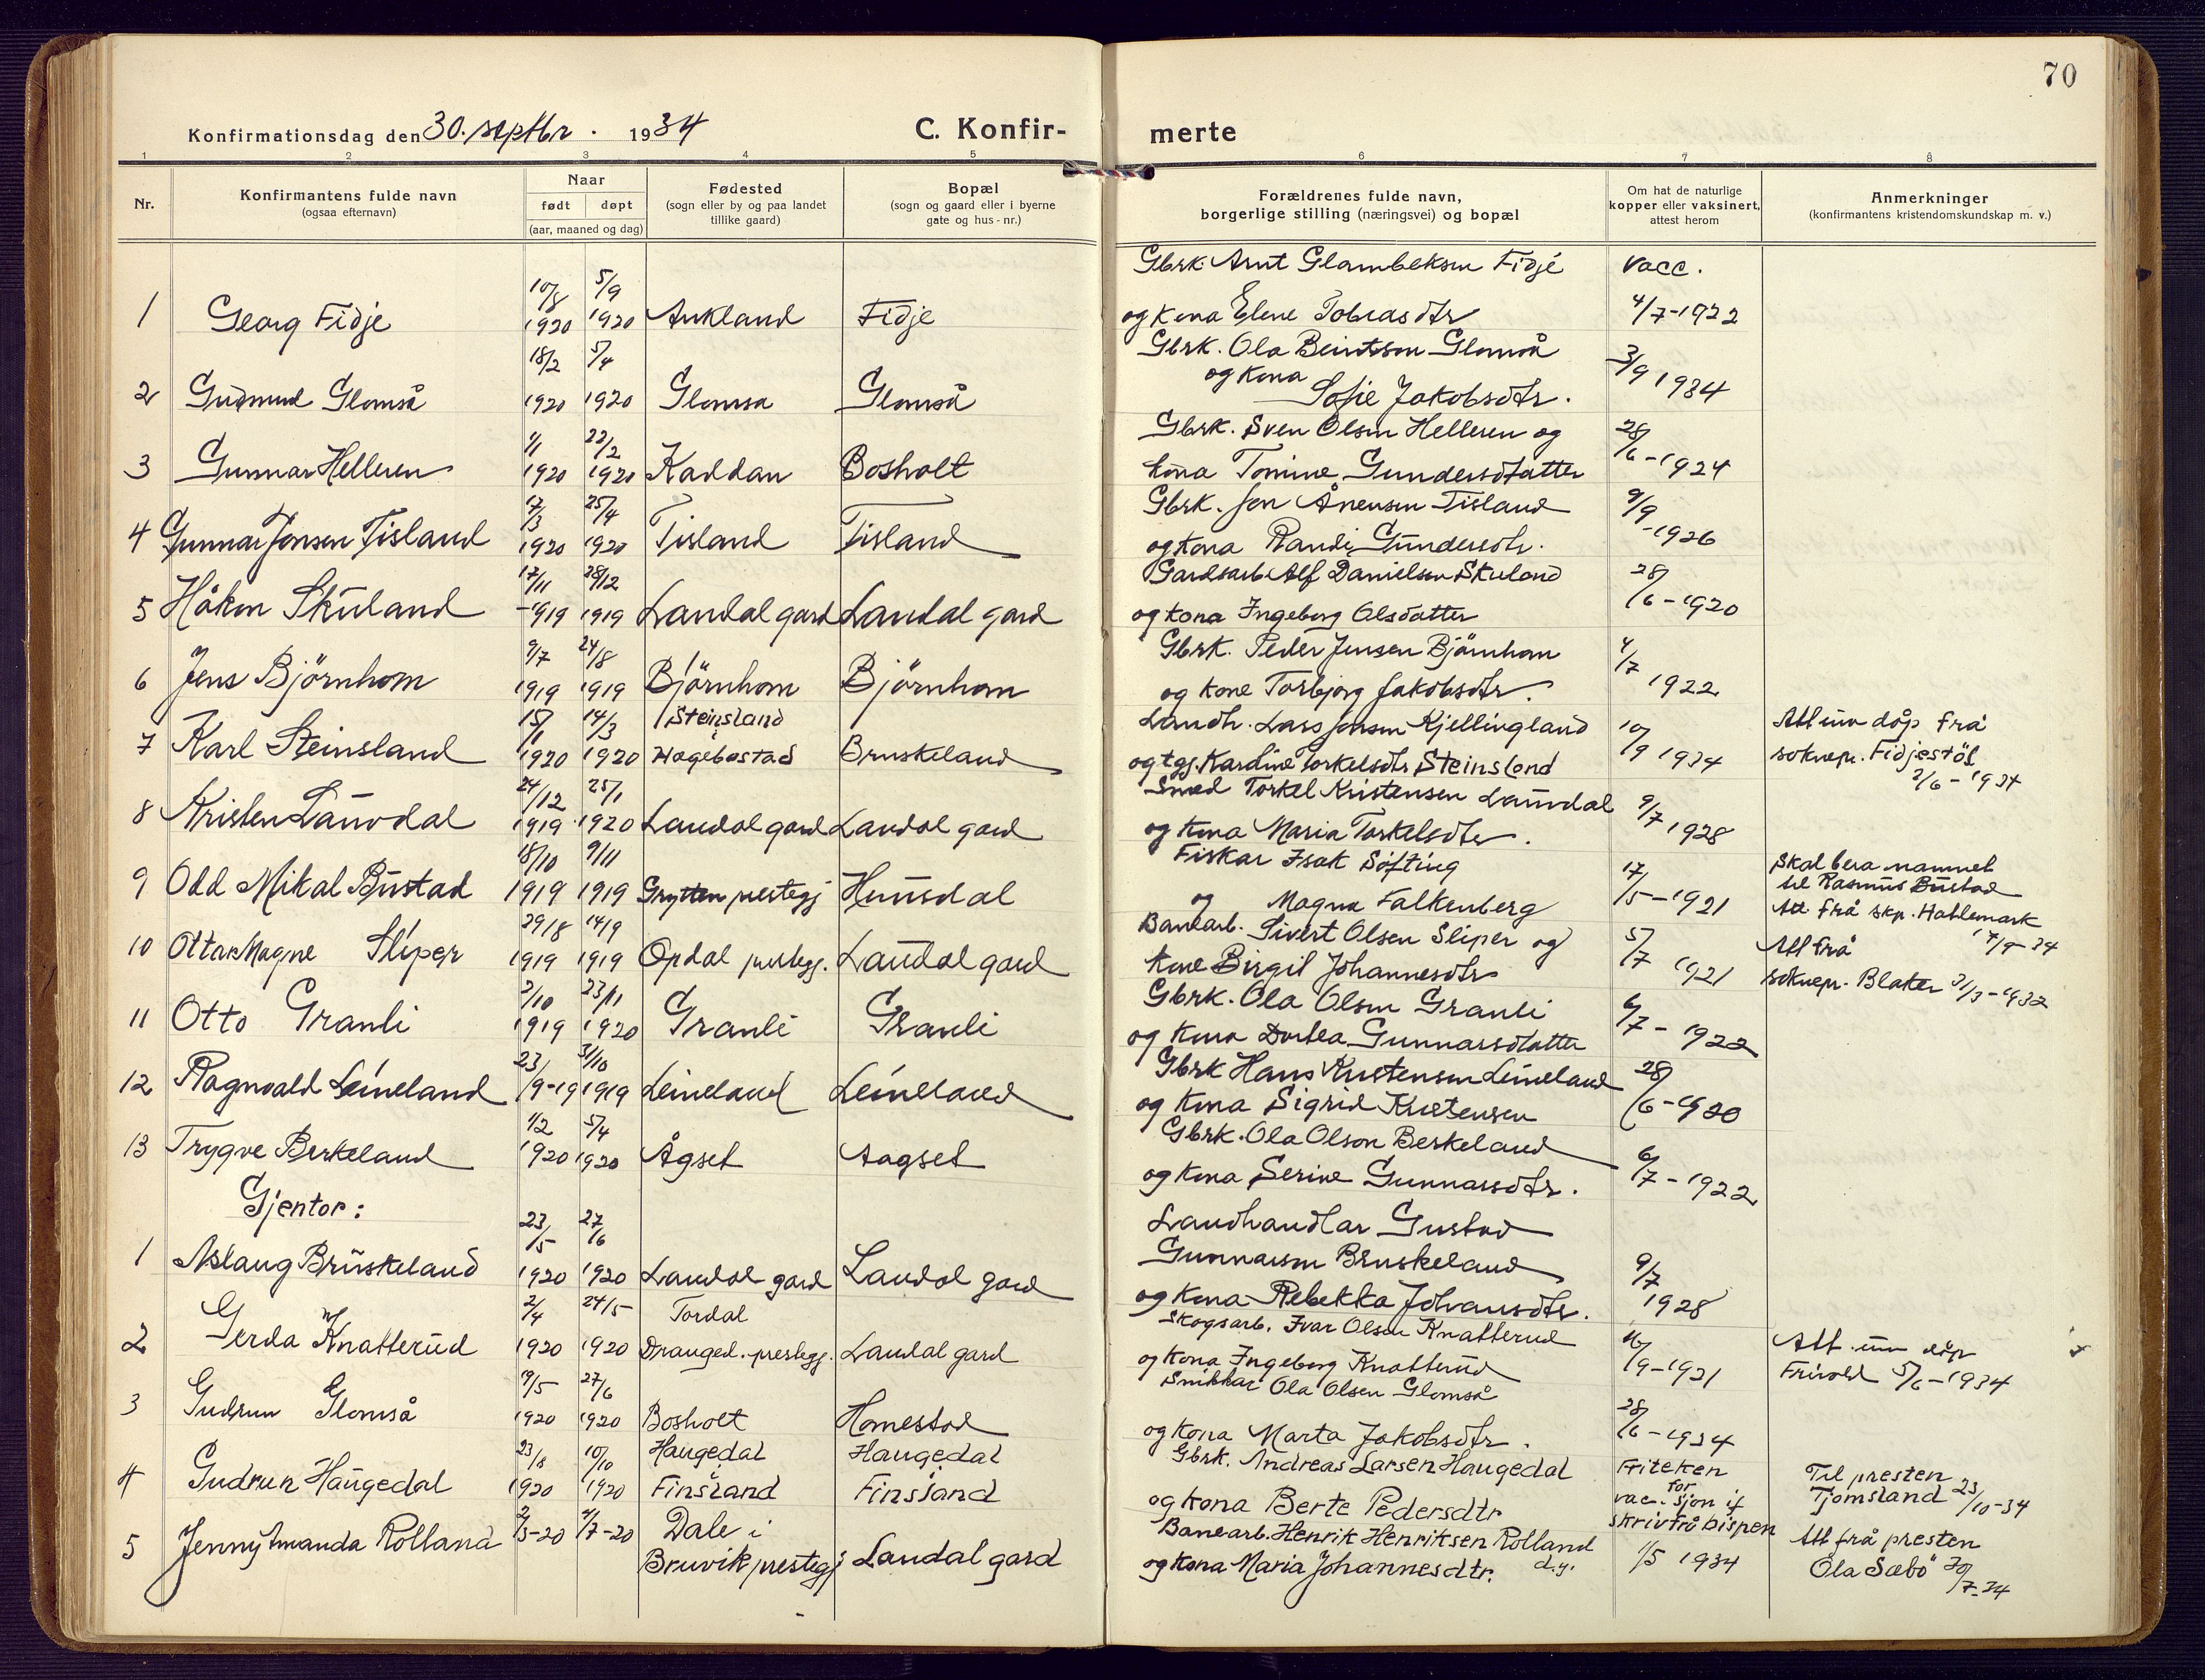 70
Konfirmationsdag den 30. septbr. 1934
C. Konfir-
merte
1 2 3 4 5 6 7 8
Nr.
Konfirmantens fulde navn
(ogsaa efternavn)
Naar
født døpt
(aar, maaned og dag)
Fødested
(sogn eller by og paa landet
tillike gaard)
Bopæl
(sogn og gaard eller i byerne
gate og hus-nr.)
Forældrenes fulde navn,
borgerlige stilling (næringsvei) og bopæl
Om hat de naturlige
kopper eller vaksinert,
attest herom
Anmerkninger
(konfirmantens kristendomskundskap m. v.)
Gbrk. Arnt Glambeksen Fidje vacc.
10/8 5/9
1 Georg Fidje 1920 1920 Aukland Fidje og kona Elene Tobiasdtr 4/7-1922
18/2 5/4 Gbrk. Ola Beintsson Glomså 3/9 1934
2 Gudmund Glomså 1920 1920 Glomsa Glomså og kona Sofie Jakobsdtr.
1/1 22/2 Gbrk. Sven Olsen Helleren og 28/6-1924
3 Gunnar Helleren 1920 1920 Kaddan Bosholt kona Tomine Gundersdatter
17/3 25/4 Gbrk. Jon Ånensen Tisland 9/9-1926
4 Gunnar Jonsen Tisland 1920 1920 Tisland Tisland og kona Randi Gundersdtr.
17/11 28/12 Gardsarb. Alf Danielsen Skuland 28/6-1920
5 Håkon Skuland -1919 1919 Laudal gard Laudal gard og kona Ingeborg Olsdatter
9/7 24/8 Gbrk. Peder Jensen Björnhom 4/7 1922
6 Jens Björnhom 1919 1919 Björnhom Björnhom og kone Torbjorg Jakobsdtr.
15/1 14/3 Steinsland Landh. Lars Jonsen Kjellingland 10/9 1934 Att um dåp frå
7 Karl Steinsland 1920 1920 Hægebostad Bruskeland og tgj. Kardine Torkelsdtr Steinsland soknepr. Fidjestöl
2/6-1934
24/12 25/1 Smed Torkel Kristensen Lauvdal 9/7 1928
8 Kristen Lauvdal 1919 1920 Laudal gard Laudal gard og kona Maria Torkelsdtr.
18/10 9/11 Fiskar Isak Söfting 17/5-1921 Skal bera namnet
9 Odd Mikal Bustad 1919 1919 Grytten prestegj Heusdal og Magna Falkenberg til Rasmus Bustad
Att frå skp. Hablemark
17/9-34
29/8 14/9 Banearb. Sivert Olsen Sliper og 5/7 1921 Att frå
10 Ottar Magne Sliper 1919 1919 Opdal prestegj. Laudal gard kone Birgit Johannesdtr soknepr. Blaker 31/3-1932
2/10 23/11 Gbrk. Ola Olsen Granli 6/7-1922
11 Otto Granli 1919 1920 Granli Granli og kona Dorthea Gunnarsdatter
23 31/10 Gbrk Hans Kristensen Leineland 28/6-1920
12 Ragnvald Leineland /9-19 1919 Leineland Leineland og kona Sigrid Kristensen
1/2 5/4 Gbrk. Ola Olson Berkeland 6/7-1922
13 Trygve Berkeland 1920 1920 Ågset Aagset og kona Serine Gunnarsdtr.
Gjentor:
23/5 27/6 Landhandlar Gustav
1 Aslaug Bruskeland 1920 1920 Laudal gard Laudal gard Gunnarson Bruskeland 9/7 1928
og kona Rebekka Johansdtr.
2/4 24/5 Tordal Skogsarb. Ivar Olsen Knatterud
2 Gerda Knatterud 1920 1920 Dranged. prestegj. Laudal gard og kona Ingeborg Knatterud 16/9-1921 Att. um dåp
Frivold 5/6-1934
19/5 27/6 Snikkar Ola Olsen Glomså 28/6-1934
3 Gudrun Glomså 1920 1920 Bosholt Homestad og kona Marta Jakobsdtr.
23/8 10/10 Haugedal Haugedal Gbrk. Andreas Larsen Haugedal Friteken
4 Gudrun Haugedal 1920 1920 Finsland Finsland og kona Berte Pedersdtr for vac.sjon if skriv frå bispen Til presten
Tjomsland 23/10-34
2/3-20 4/7-20 Dale i Banearb. Henrik Henriksen Rolland Att frå presten
5 Jenny Amanda Rolland Bruvik prestegj Laudal gard og kona Maria Johannesdtr. d.y. 1/5 1934 Ola Sæbö 30/7-34